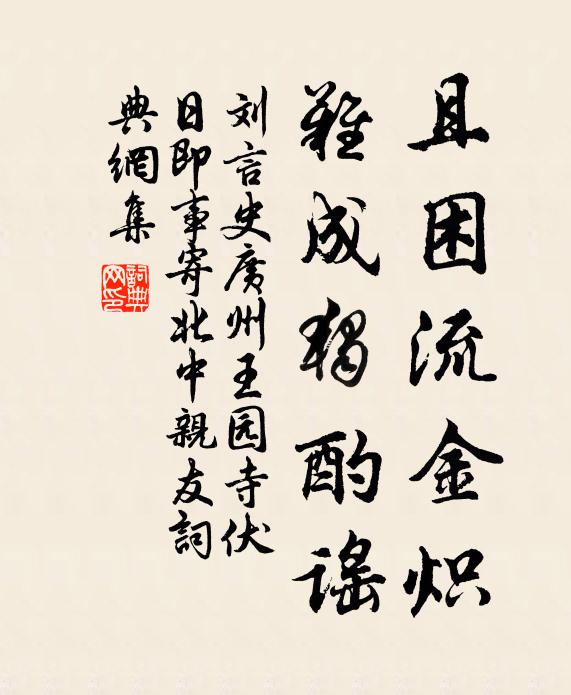 且困流金炽
难成独酌谣
刘言史廣州王园寺伏
日即事寄北中親友詞
典網集
詞典网印